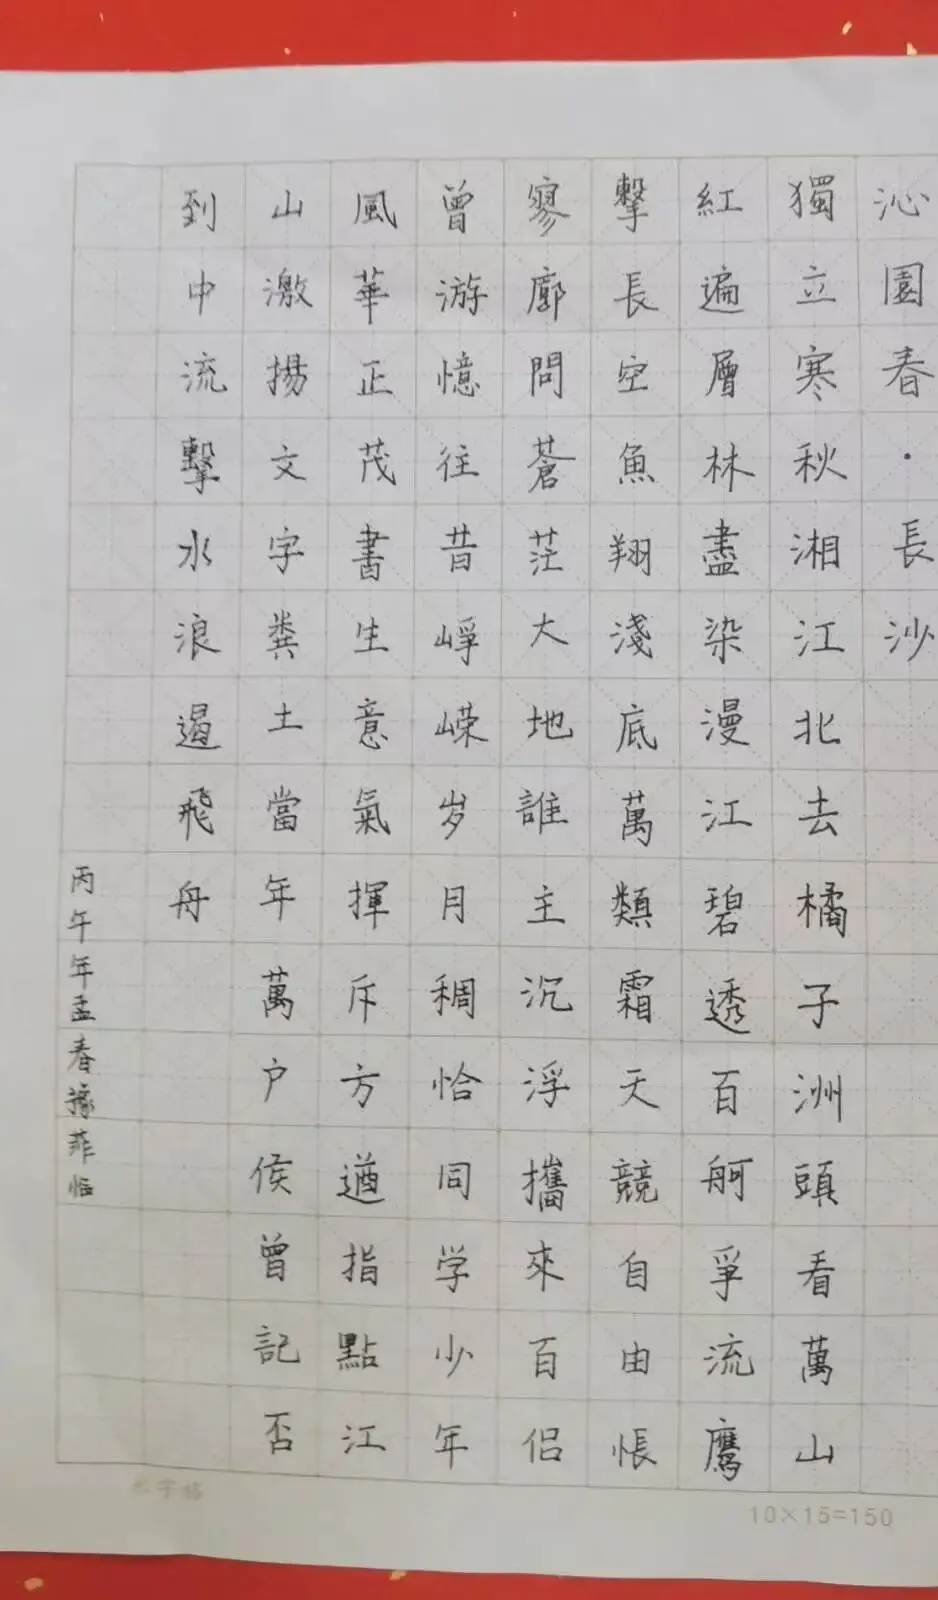 沁園春·長沙
獨立寒秋湘江北去橘子洲頭看萬山
紅遍層林盡染漫江碧透百舸爭流鷹
擊長空魚翔淺底萬類霜天競自由悵
寥廓問蒼茫大地誰主沉浮攜來百侣
曾游憶往昔崢嵘岁月稠恰同学少年
風華正茂書生意氣揮斥方遒指點江
山激揚文字粪土當年萬户侯曾記否
到中流擊水浪遏飛舟
丙午年孟春豫菲临
10×15=150